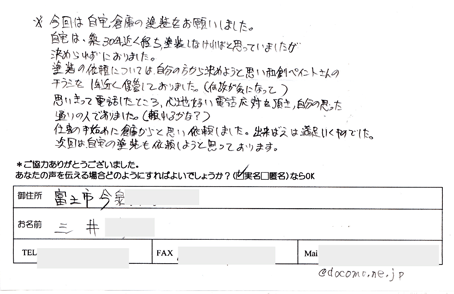 ※ 今回は自宅倉庫の塗装をお願いしました。
自宅は、築30年近く経ち塗装しなければと思っていましたが
決められずにおりました。
塗装の依頼については、自分の方から決めようと思い
チラシを1年近く保管しておりました。(何故か気になって)
思いきって電話したところ、心地よい電話反対を頂き、自分の思った
通りの人でありました。(頼れるかな?)
仕事の手始めに倉庫からと思い依頼しました。出来ばえは満足いく物でした。
次回は自宅の塗装も依頼しようと思っております。
*ご協力ありがとうございました。
あなたの声を伝える場合どのようにすればよいでしょうか?(☑実名□匿名)ならOK
御住所 富士市今泉
お名前 三井
TEL FAX Mai
@docomo.ne.jp